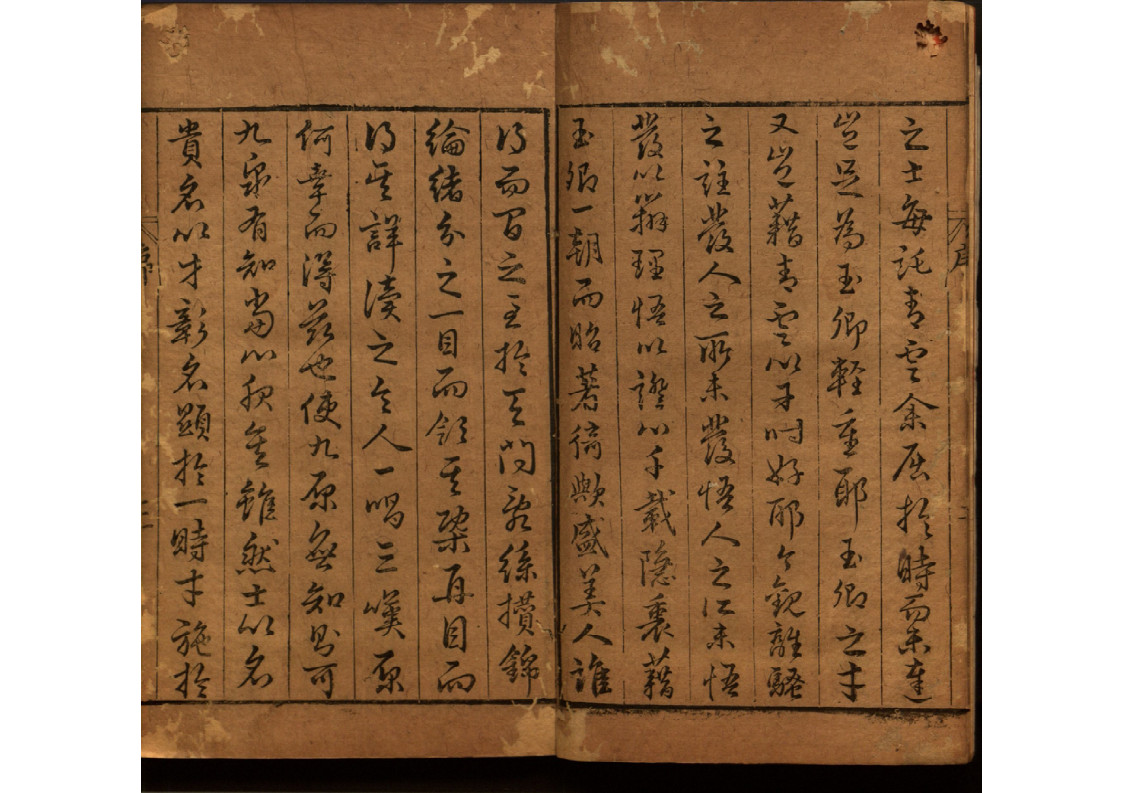 之士每託青雲余居於時而未達
豈足為玉卿輕重耶玉卿之才
又豈藉青雲以子時好耶今觀離騷
之註發人之所未發悟人之所未悟
發以辨理悟以證心千載隱衷藉
玉卿一朝而昭著猗歟盛美人誰
得而間之至於天問亂絲攢錦
綸緒分之一目而領其槩再目而
得其詳讀之令人一唱三嘆原
何幸而得茲也使九原無知則可
九泉有知當心我矣雖然士以名
貴名以才彰名顯於一時才施於
序
序